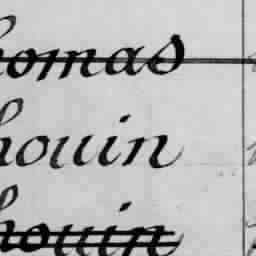 homas
houin
houin